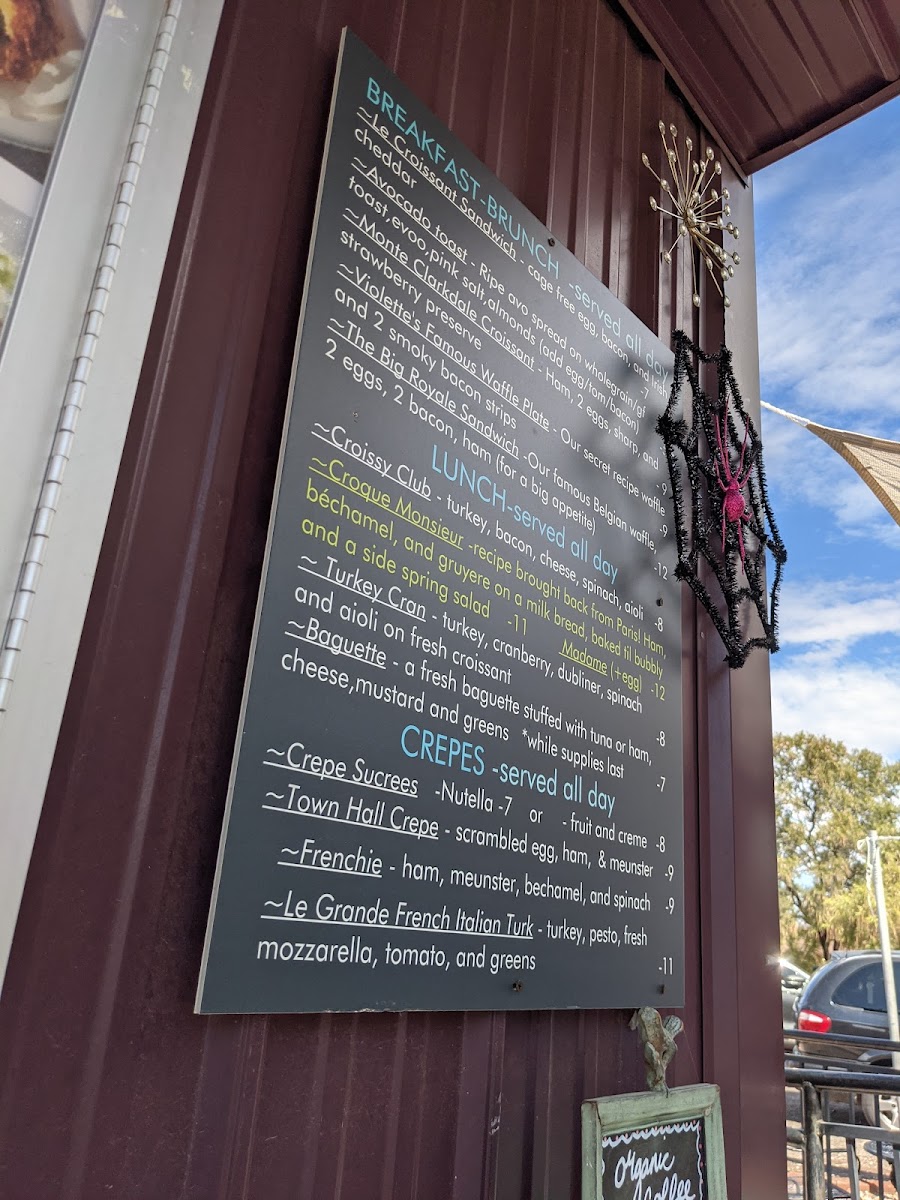 BREAKFAST -BRUNCH -served all day
~Le Croissant Sandwich - cage free egg, bacon, and Irish
cheddar -7
~Avocado toast - Ripe avo spread on wholegrain/gf
toast,evoo,pink salt,almonds (add egg/tom/bacon)
~Monte Clarkdale Croissant - Ham, 2 eggs, sharp, and
strawberry preserve - 9
~Violette's Famous Waffle Plate - Our secret recipe waffle
and 2 smoky bacon strips -9
~The Big Royale Sandwich -Our famous Belgian waffle,
2 eggs, 2 bacon, ham (for a big appetite) -12
LUNCH-served all day
~Croissy Club - turkey, bacon, cheese, spinach, aioli -8
~Croque Monsieur -recipe brought back from Paris! Ham,
béchamel, and gruyere on a milk bread, baked til bubbly
and a side spring salad -11 Madame (+egg) -12
~ Turkey Cran - turkey, cranberry, dubliner, spinach
and aioli on fresh croissant -8
~Baguette - a fresh baguette stuffed with tuna or ham,
cheese,mustard and greens *while supplies last -7
CREPES -served all day
~Crepe Sucrees -Nutella -7 or - fruit and creme -8
~Town Hall Crepe - scrambled egg, ham, & meunster -9
~Frenchie - ham, meunster, bechamel, and spinach -9
~Le Grande French Italian Turk - turkey, pesto, fresh
mozzarella, tomato, and greens -11
organic
Coffee